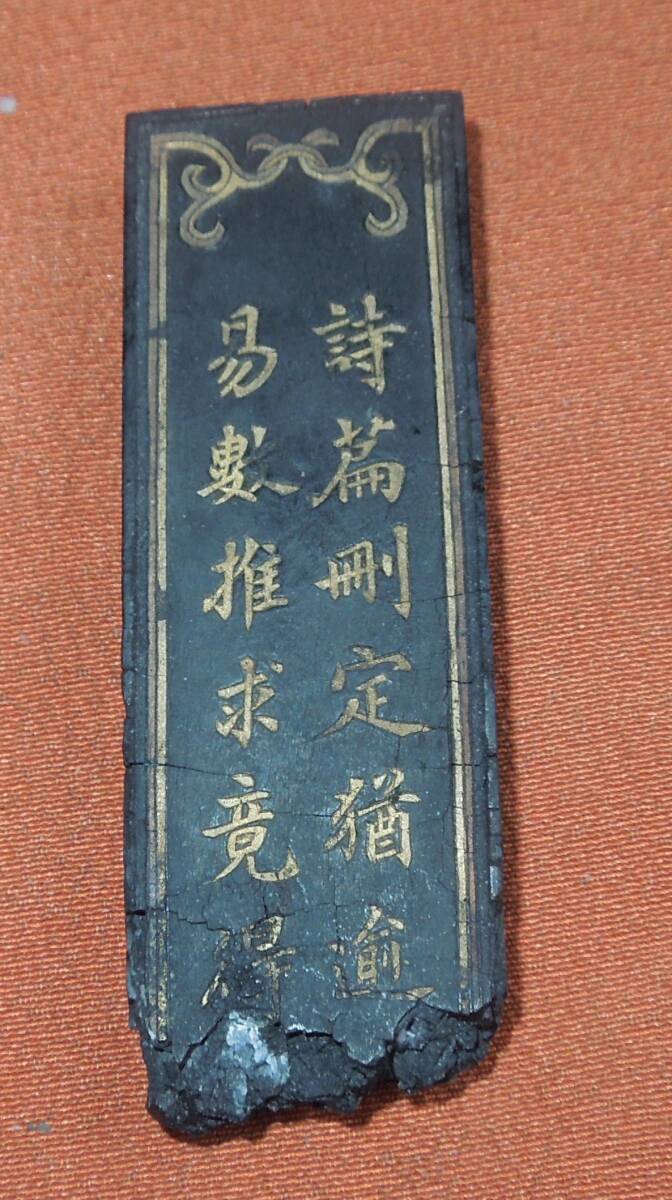 詩篇刪定猶逾
易數推求竟得